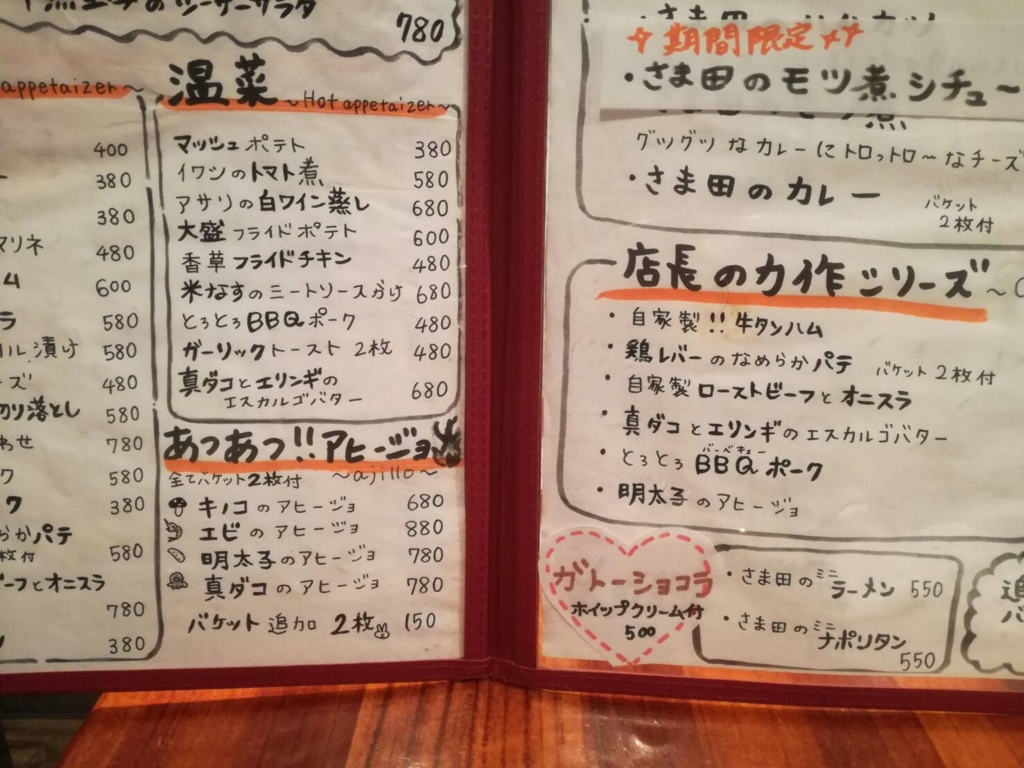 のシーザーサラダ
780
appetaizer~
400
380
380
マリネ 480
ム 600
ラ 580
漬け 580
ズ 480
切り落とし 580
わせ 780
ク 580
ク 380
らかパテ
枚付 580
ビーフとオニスラ
780
380
温菜 ~Hot appetaizer~
マッシュポテト 380
イワシのトマト煮 580
アサリの白ワイン蒸し 680
大盛フライドポテト 600
香草フライドチキン 480
米なすのミートソースがけ 680
とろとろBBQポーク 480
ガーリックトースト 2枚 480
真ダコとエリンギの
エスカルゴバター 680
あつあつ!!アヒージョ
全てバケット2枚付 ~ajillo~
キノコのアヒージョ 680
エビのアヒージョ 880
明太子のアヒージョ 780
真ダコのアヒージョ 780
バケット追加 2枚 150
期間限定
・さま田のモツ煮シチュー
グツグツなカレーにトロットロ~なチーズ
・さま田のカレー バケット
2枚付
店長の力作シリーズ~
・自家製!!牛タンハム
・鶏レバーのなめらかパテ バケット2枚付
・自家製ローストビーフとオニスラ
・真ダコとエリンギのエスカルゴバター
・とろとろBBQポーク
バーベキュー
・明太子のアヒージョ
ガトーショコラ
ホイップクリーム付
500
・さま田のミニラーメン 550
・さま田のミニナポリタン
550
追